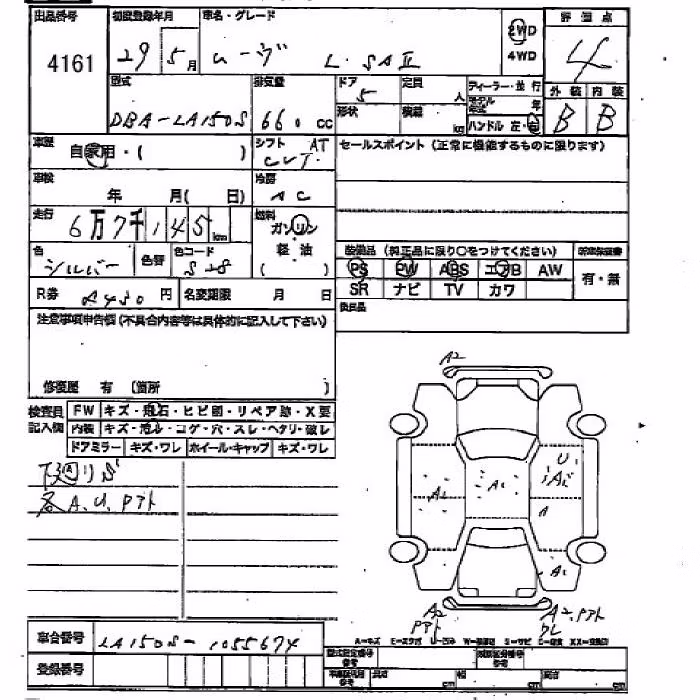 出品番号 初度登録年月 車名・グレード 評価点
4161 29 5月 ムーヴ L・SAⅡ 2WD 4WD 4
型式 排気量 ドア 定員 ディーラー・並行 外装 内装
DBA-LA150S 660cc 5 人 年 B B
形状 積載 kg ハンドル 左・右
車歴 自家用・( ) シフト AT CVT セールスポイント (正常に機能するものに限ります)
車検 年 月( 日) 冷房 AC
走行 6万7千145km 燃料 ガソリン
色 シルバー 色替 色コード S28 軽油 ( ) 装備品 (純正品に限り○をつけてください)
PS PW ABS エアB AW 有・無
R券 円 名変期限 月 日 SR ナビ TV カワ
注意事項申告欄 (不具合内容等は具体的に記入して下さい)
修復歴 有 (箇所 )
検査員記入欄 FW キズ・飛石・ヒビ割・リペア跡・X要
内装 キズ・汚れ・コゲ・穴・スレ・ヘタリ・破レ
ドアミラー キズ・ワレ ホイール・キャップ キズ・ワレ
下廻りS
各A.U.Pアト
A2
U
A1 A1
A
A1
A2 Pアト
A2.Pアト
A=キズ U=凹み S=サビ
車台番号 LA150S-1055674
登録番号
型式指定番号 類別区分番号
長さ cm 幅 cm 高さ cm